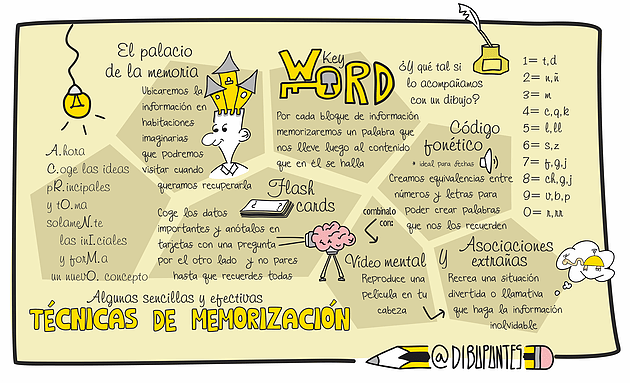 El palacio
de la memoria
Ubicaremos la
información en
habitaciones
imaginarias
que podremos
visitar cuando
queramos recuperarla
Key
WORD
Por cada bloque de información
memorizaremos un palabra que
nos lleve luego al contenido
que en él se halla
¿Y qué tal si
lo acompañamos
con un dibujo?
1= t,d
2= n,ñ
3= m
4= c,q,k
5= l,ll
6= s,z
7= f,g,j
8= ch,g,j
9= v,b,p
0= r,rr
Código
fonético
* ideal para fechas
Creamos equivalencias entre
números y letras para
poder crear palabras
que nos los recuerden
A.hora
C.oge las ideas
pR.incipales
y tO.ma
solameN.te
las inI.ciales
y forM.a
un nuevO. concepto
Flash
cards
Coge los datos
importantes y anótalos en
tarjetas con una pregunta
por el otro lado y no pares
hasta que recuerdes todas
combínalo
con:
Vídeo mental
Reproduce una
película en tu
cabeza
y
Asociaciones
extrañas
Recrea una situación
divertida o llamativa
que haga la información
inolvidable
Algunas sencillas y efectivas
TÉCNICAS DE MEMORIZACIÓN
@DIBUPUNTES